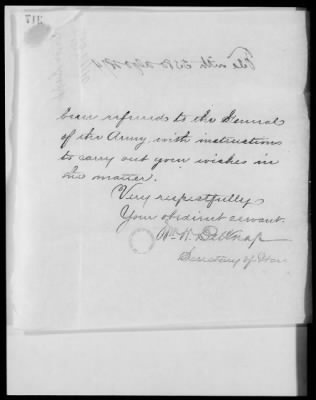 been referred to the General
of the Army with instructions
to carry out your wishes in
the matter.
Very respectfully
Your obedient servant.
Wm. W. Belknap
Secretary of War